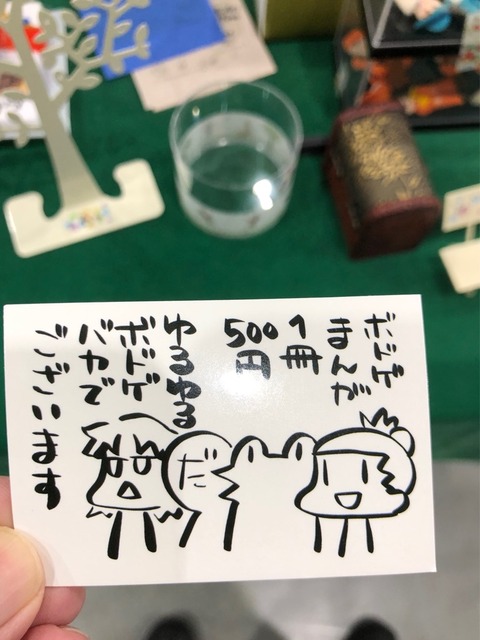 ボドゲ
まんが
1冊
500
円
ゆるゆる
ボドゲ
バカで
ございます
だ